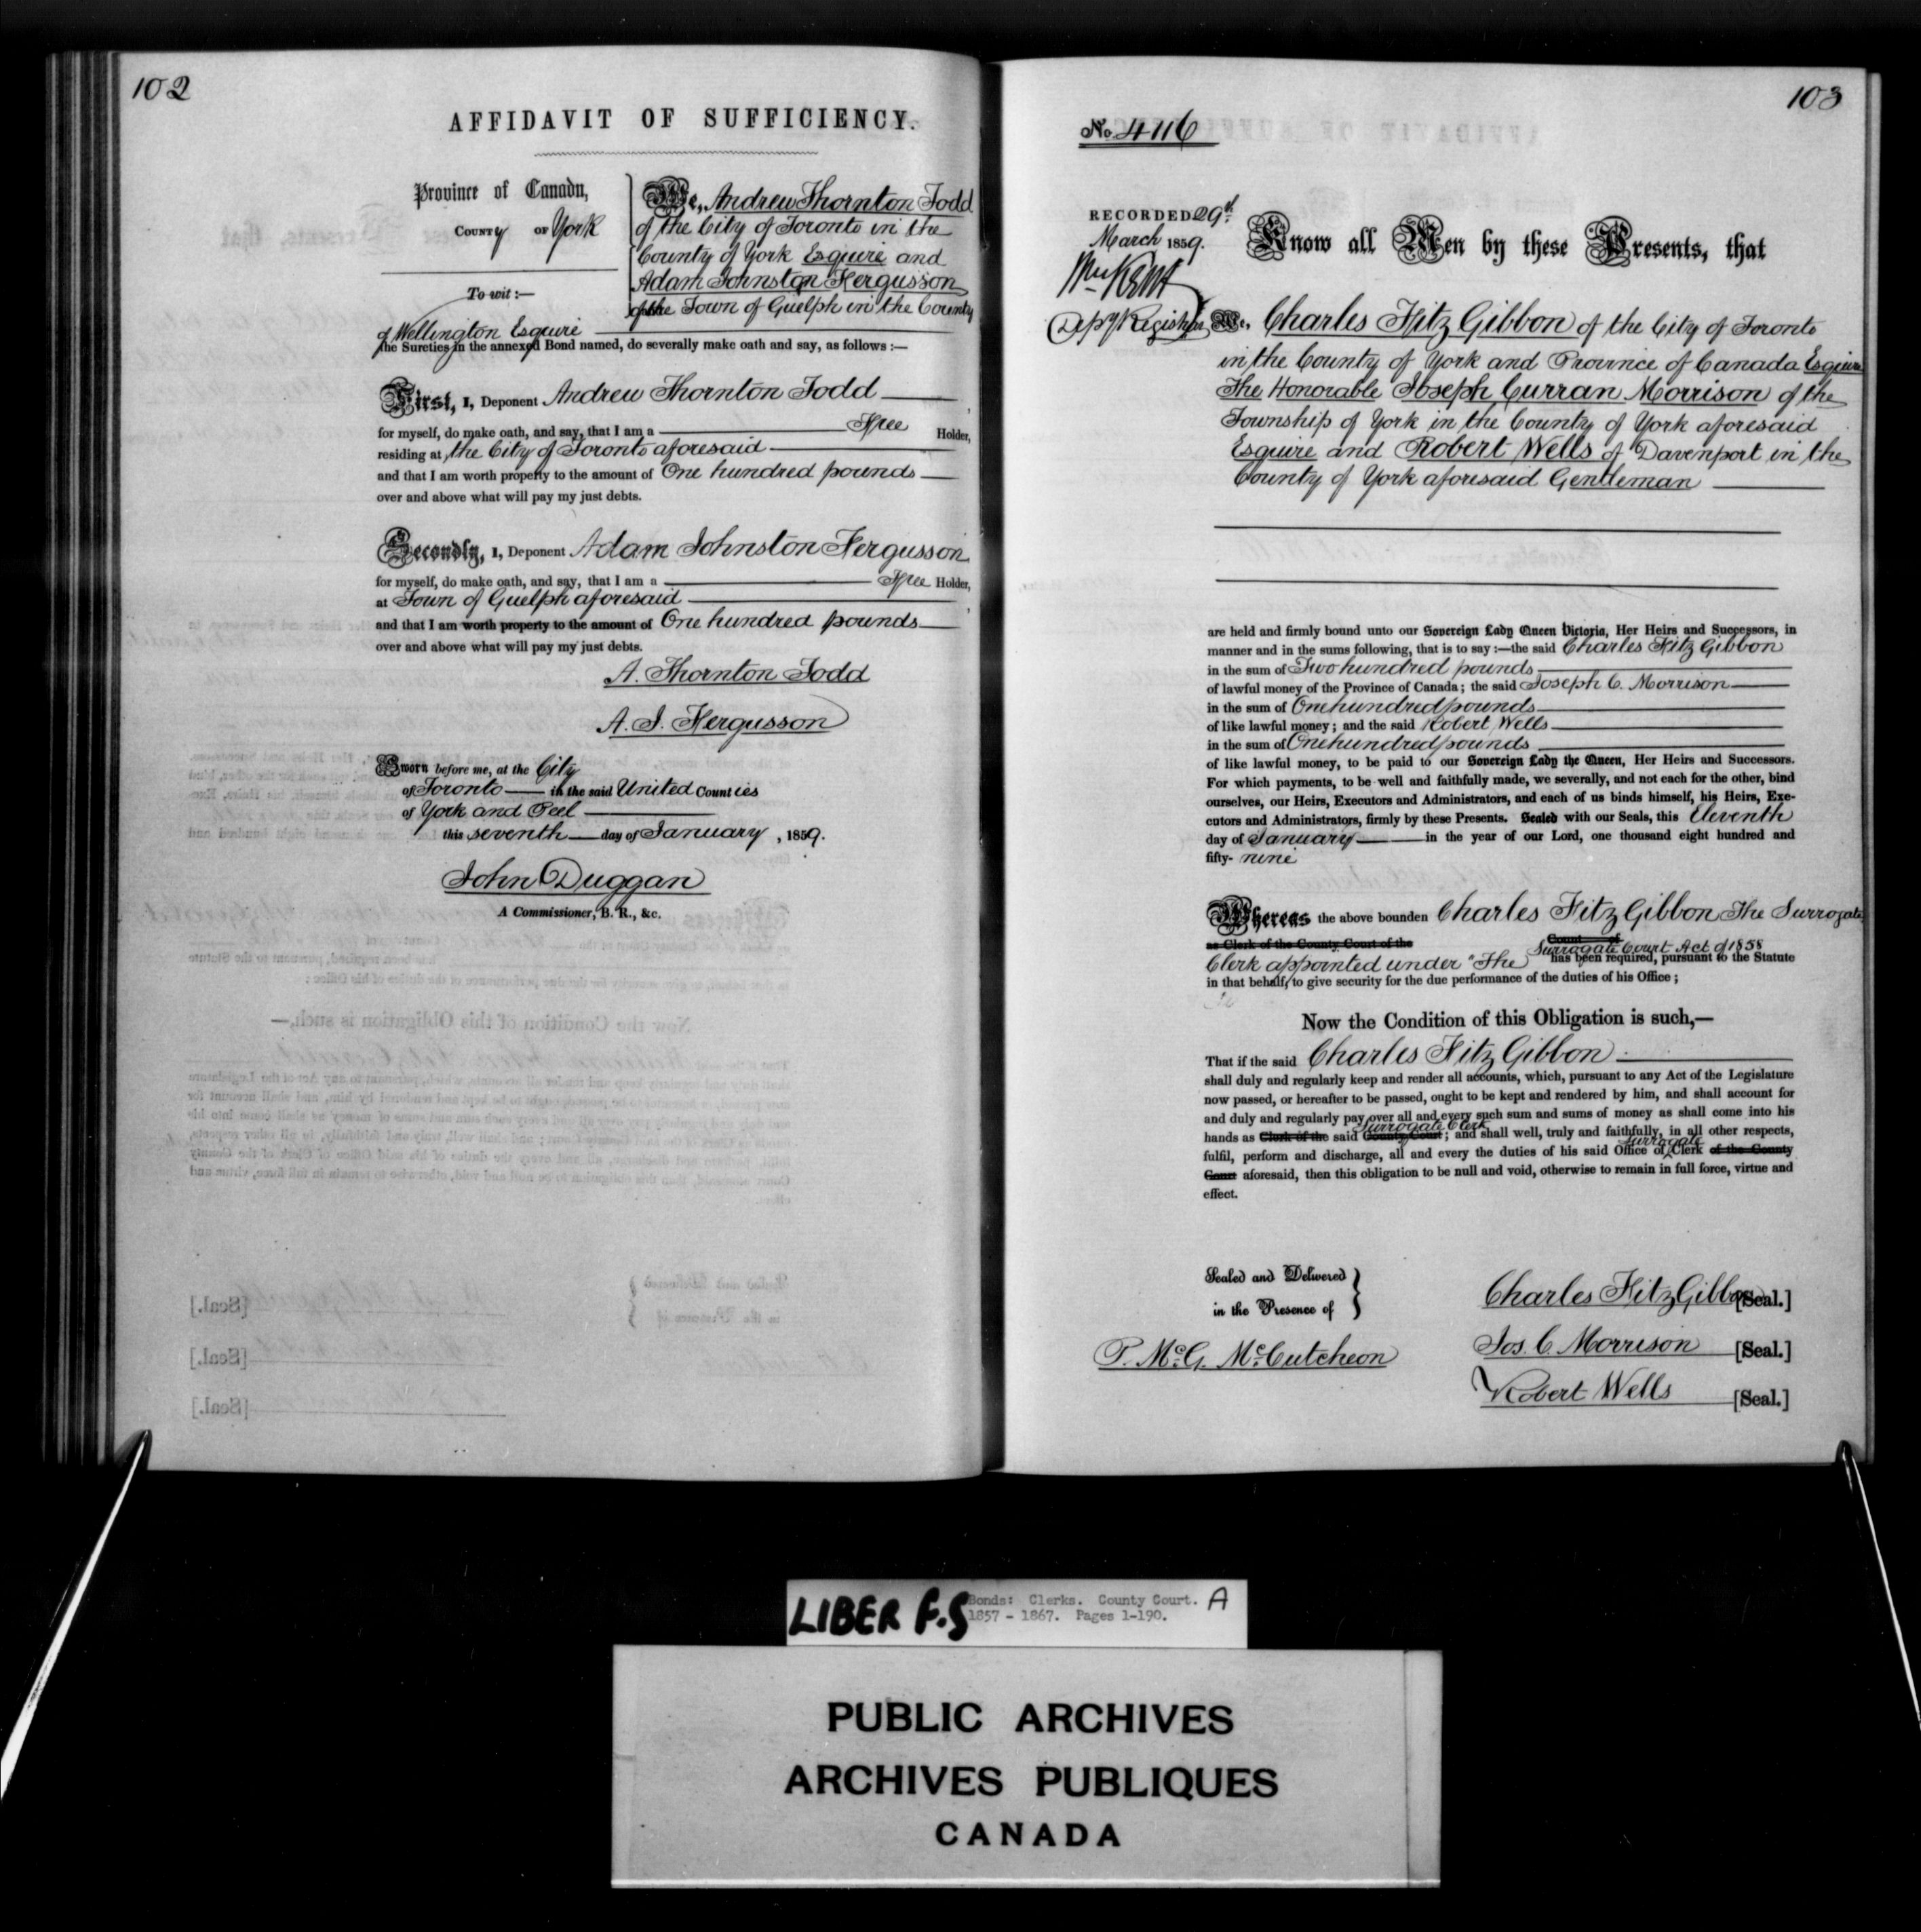 102
AFFIDAVIT OF SUFFICIENCY.
Province of Canada,
COUNTY OF York
To wit:—
We, Andrew Thornton Todd
of the City of Toronto in the
County of York Esquire and
Adam Johnston Fergusson
of the Town of Guelph in the County
of Wellington Esquire
the Sureties in the annexed Bond named, do severally make oath and say, as follows:—
First, I, Deponent Andrew Thornton Todd ,
for myself, do make oath, and say, that I am a Free Holder,
residing at the City of Toronto aforesaid
and that I am worth property to the amount of One hundred pounds
over and above what will pay my just debts.
Secondly, I, Deponent Adam Johnston Fergusson
for myself, do make oath, and say, that I am a Free Holder,
at Town of Guelph aforesaid ,
and that I am worth property to the amount of One hundred pounds
over and above what will pay my just debts.
A. Thornton Todd
A. J. Fergusson
Sworn before me, at the City
of Toronto in the said United Counties
of York and Peel
this seventh day of January, 1859.
John Duggan
A Commissioner, B. R., &c.
103
No. 4116
RECORDED 29th
March 1859.
Wm Kent
Depy Registrar
Know all Men by these Presents, that
We, Charles Fitz Gibbon of the City of Toronto
in the County of York and Province of Canada Esquire
The Honorable Joseph Curran Morrison of the
Township of York in the County of York aforesaid
Esquire and Robert Wells of Davenport in the
County of York aforesaid Gentleman
are held and firmly bound unto our Sovereign Lady Queen Victoria, Her Heirs and Successors, in
manner and in the sums following, that is to say:—the said Charles Fitz Gibbon
in the sum of Two hundred pounds
of lawful money of the Province of Canada; the said Joseph C. Morrison
in the sum of One hundred pounds
of like lawful money; and the said Robert Wells
in the sum of One hundred pounds
of like lawful money, to be paid to our Sovereign Lady the Queen, Her Heirs and Successors.
For which payments, to be well and faithfully made, we severally, and not each for the other, bind
ourselves, our Heirs, Executors and Administrators, and each of us binds himself, his Heirs, Exe-
cutors and Administrators, firmly by these Presents. Sealed with our Seals, this Eleventh
day of January in the year of our Lord, one thousand eight hundred and
fifty- nine
Whereas the above bounden Charles Fitz Gibbon The Surrogate
as Clerk of the County Court of the County of
Surrogate Court Act of 1858
Clerk appointed under "The has been required, pursuant to the Statute
in that behalf, to give security for the due performance of the duties of his Office;
Now the Condition of this Obligation is such,—
That if the said Charles Fitz Gibbon
shall duly and regularly keep and render all accounts, which, pursuant to any Act of the Legislature
now passed, or hereafter to be passed, ought to be kept and rendered by him, and shall account for
and duly and regularly pay over all and every such sum and sums of money as shall come into his
Surrogate Clerk
hands as Clerk of the said County Court; and shall well, truly and faithfully, in all other respects,
Surrogate
fulfil, perform and discharge, all and every the duties of his said Office of Clerk of the County
Court aforesaid, then this obligation to be null and void, otherwise to remain in full force, virtue and
effect.
Sealed and Delivered
in the Presence of
P. McG. McCutcheon
Charles Fitz Gibbon [Seal.]
Jos. C. Morrison [Seal.]
Robert Wells [Seal.]
LIBER F.S
Bonds: Clerks. County Court. A
1857 - 1867. Pages 1-190.
PUBLIC ARCHIVES
ARCHIVES PUBLIQUES
CANADA